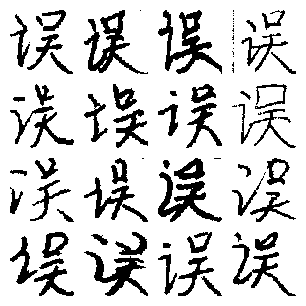 误误误误
误误误误
误误误误
误误误误